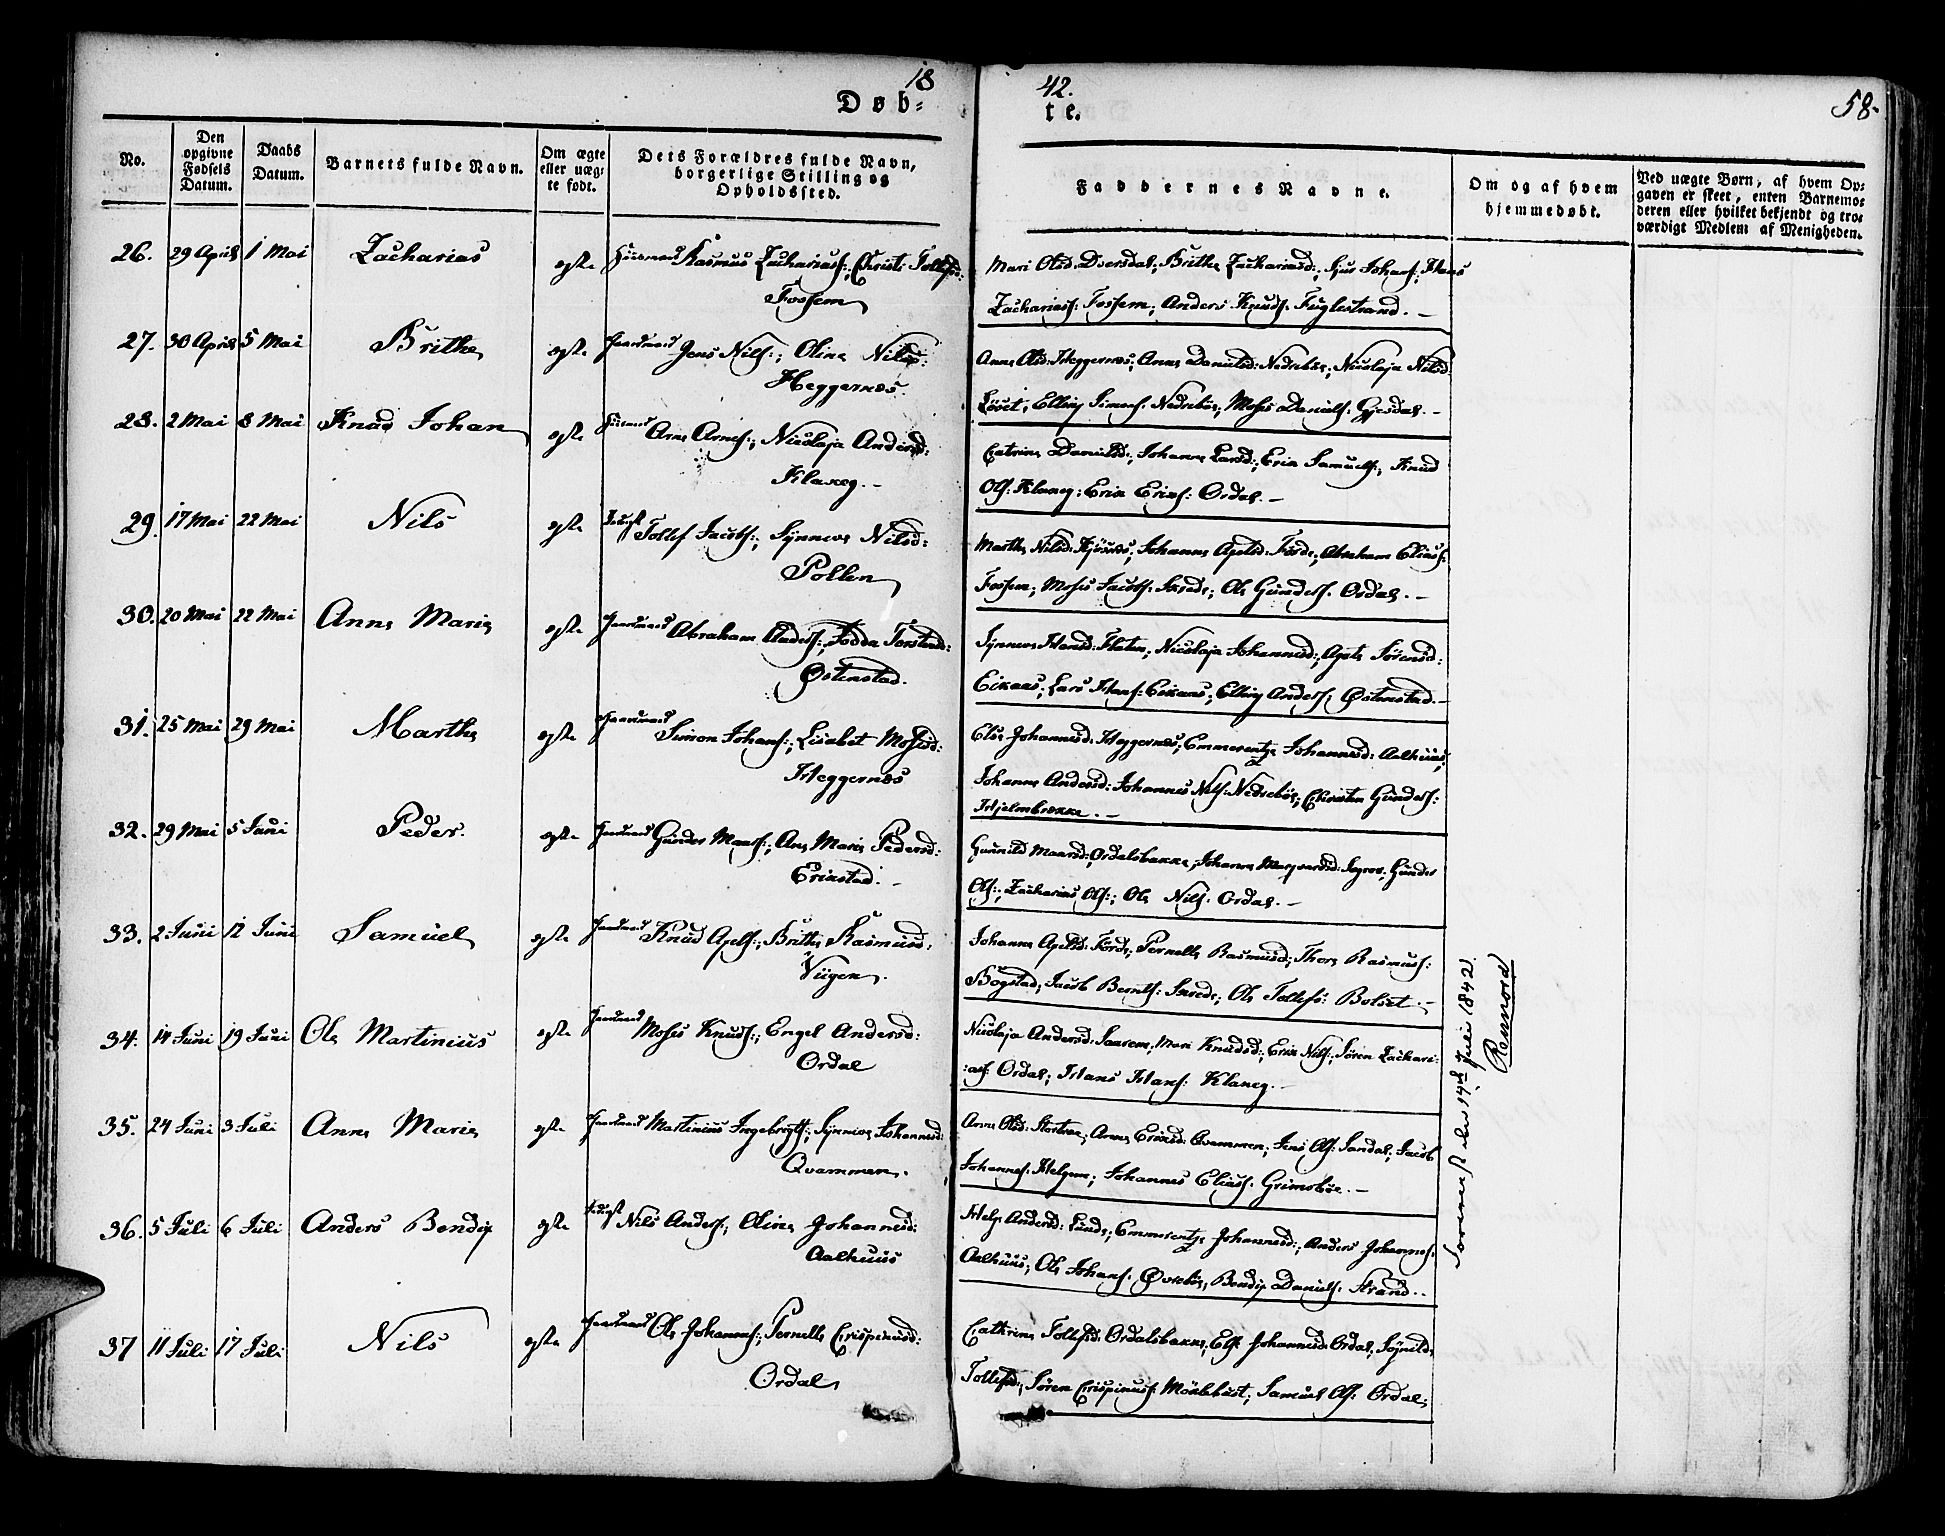 18
42.
58.
Døb-
te.
No.
Den opgivne Fødsels Datum.
Daabs Datum.
Barnets fulde Navn.
Om ægte eller uæg-te født.
Dets Forældres fulde Navn, borgerlige Stilling og Opholdssted.
Faddernes Navne.
Om og af hvem hjemmedøbt.
Ved uægte Børn, af hvem Op-gaven er skeet, enten Barnemo-deren eller hvilket bekjendt og tro-værdigt Medlem af Menigheden.
26. 29 April 1 Mai Zacharias egte Huusmand Rasmus Zachariass:, Christi Tollefsd:
Fossem
Mari Olsd: Dversdal; Brithe Zachariasd:, Sjur Johans:, Hans
Zachariass: Fossem; Anders Knuds: Fuglestrand.
27. 30 April 5 Mai Brithe egte Gaardmand Jens Nils:; Oline Nilsd:
Heggernæs.
Anne Olsd: Heggernæs; Anne Danielsd: Nedrebøe; Nicolaja Nilsd:
Løset, Elling Simons: Nedrebøe; Moses Daniels: Gjesdal.
28. 2 Mai 8 Mai Knud Johan egte Huusmand Arne Arnes:; Nicolaja Andersd:
Klaveg.
Catrine Danielsd:, Johanne Larsd:, Erik Samuels:, Knud
Ols: Klaveg; Erik Eriks: Ordal.
29. 17 Mai 22 Mai Nils egte Tollef Jacobs:, Synneve Nilsd:
Pollen
Marthe Nilsd: Kjørsnæs; Johanne Apelsd: Førde; Abraham Elias:
Fossem; Moses Jacobs: ; Ole Gunders: Ordal.
30. 20 Mai 22 Mai Anne Marie egte Gaardmand Abraham Anders:, Torstensd:
Østenstad.
Synneve Hansd: Flaten; Nicolaja Johannesd:, Agate Sørensd:
Eikaas; Lars Hans: Eikaas; Elling Anders: Østenstad.
31. 25 Mai 29 Mai Marthe egte Gaardmand Simon Johans:; Lisabet Mosesd:
Heggernæs
Else Johannesd: Heggernæs; Emmerentze Johannesd: Aalhuus;
Johanne Andersd: Johannes Nils: Nedrebøe; Christen Gunders:
Hjelmbrekke.
32. 29 Mai 5 Juni Peder. egte Gaardmand Gunder Maars:, Ane Marie Pedersd:
Erikstad.
Gunild Maarsd: Ordalsbakke; Johanne Marquardsd: ; Gunder
Ols:, Zacharias Ols:; Ole Nils: Ordal.
33. 2 Juni 12 Juni Samuel egte Gaardmand Knud Apels:, Brithe Rasmusd:
Viigen.
Johanne Apelsd: Førde; Pernelle Rasmusd; Thore Rasmus:
Bogstad; Jacob Bernts: ; Ole Tollefs: Bolset.
34. 14 Juni 19 Juni Ole Martinius egte Gaardmand Moses Knuds:; Engel Andersd:
Ordal
Nicolaja Andersd: ; Mari Knudsd:, Erik Nils:, Søren Zachari-
:as: Ordal; Hans Hans: Klaveg.
35. 24 Juni 3 Juli Anne Marie egte Gaardmand Martinius Ingebrigts:; Synneve Johannesd:
Qvammen.
Anne Olsd: ; Anne Eriksd: Qvammen; Jens Ols: Sandal; Jacob
Johannes: Helgeim; Johannes Elias: Grimsbøe.
36. 5 Juli 6 Juli Anders Bendix egte Nils Anders:; Oline Johannesd:
Aalhuus
Andersd: Lunde; Emmerentze Johannesd:, Anders Johannes:
Aalhuus; Ole Johans: Øvrebøe; Bendix Daniels: Strand.
37 11 Juli 17 Juli Nils egte Gaardmand Ole Johannes:, Pernelle Crispinusd:
Ordal
Cathrine Tollefsd: Ordalsbakke; Johannesd: Ordal;
Tollefsd:, Søren Crispinus: ; Samuel Ols: Ordal.
den 14de Juli 1842.
Rennord